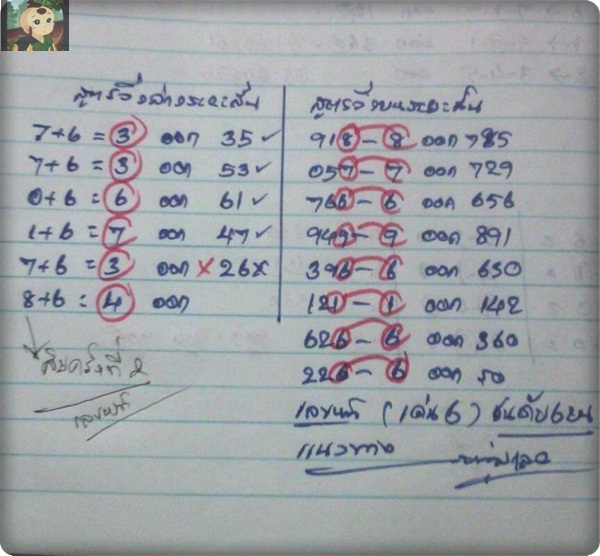 สูตรวิ่งล่างระยะสั้น
7+6 = 3 ออก 35 ✓
7+6 = 3 ออก 53 ✓
0+6 = 6 ออก 61 ✓
1+6 = 7 ออก 47 ✓
7+6 = 3 ออก × 26 ×
8+6 = 4 ออก
ครั้งที่ 2
สูตรวิ่งบนระยะสั้น
918 - 8 ออก 785
057 - 7 ออก 729
766 - 6 ออก 656
949 - 9 ออก 891
396 - 6 ออก 650
121 - 1 ออก 142
626 - 6 ออก 360
226 - 6 ออก
(เด่น 6)
แนวทาง